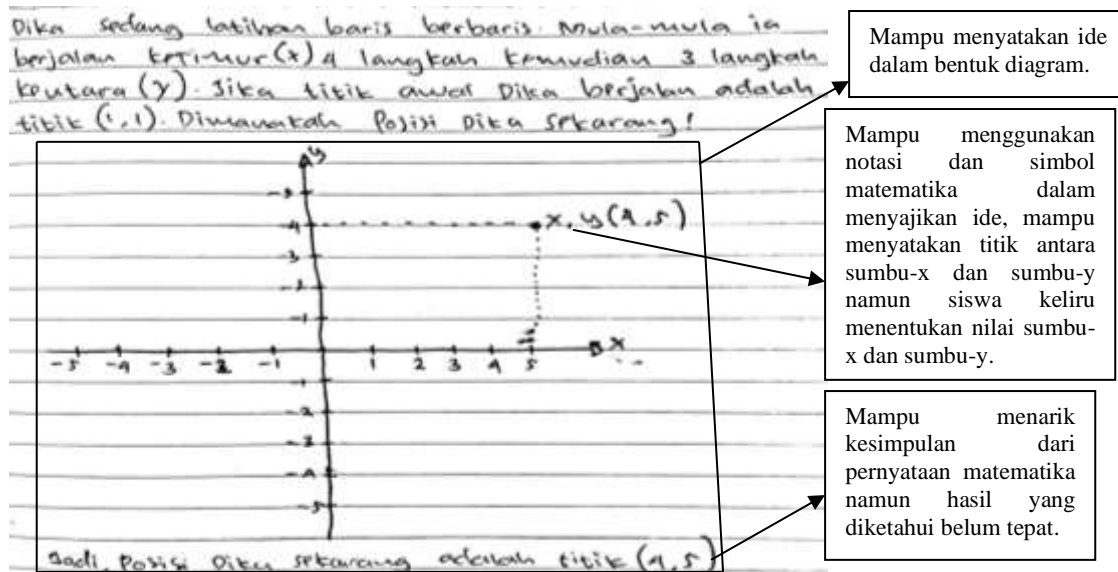 Dika sedang latihan baris berbaris. Mula-mula ia
berjalan ketimur (x) 4 langkah kemudian 3 langkah
keutara (y). Jika titik awal Dika berjalan adalah
titik (1,1). Dimanakah Posisi Dika sekarang!
y
5
4
x, y (4,5)
3
2
1
-5 -4 -3 -2 -1 1 2 3 4 5 x
-1
-2
-3
-4
-5
Jadi, Posisi Dika sekarang adalah titik (4,5)
Mampu menyatakan ide
dalam bentuk diagram.
Mampu menggunakan
notasi dan simbol
matematika dalam
menyajikan ide, mampu
menyatakan titik antara
sumbu-x dan sumbu-y
namun siswa keliru
menentukan nilai sumbu-
x dan sumbu-y.
Mampu menarik
kesimpulan dari
pernyataan matematika
namun hasil yang
diketahui belum tepat.